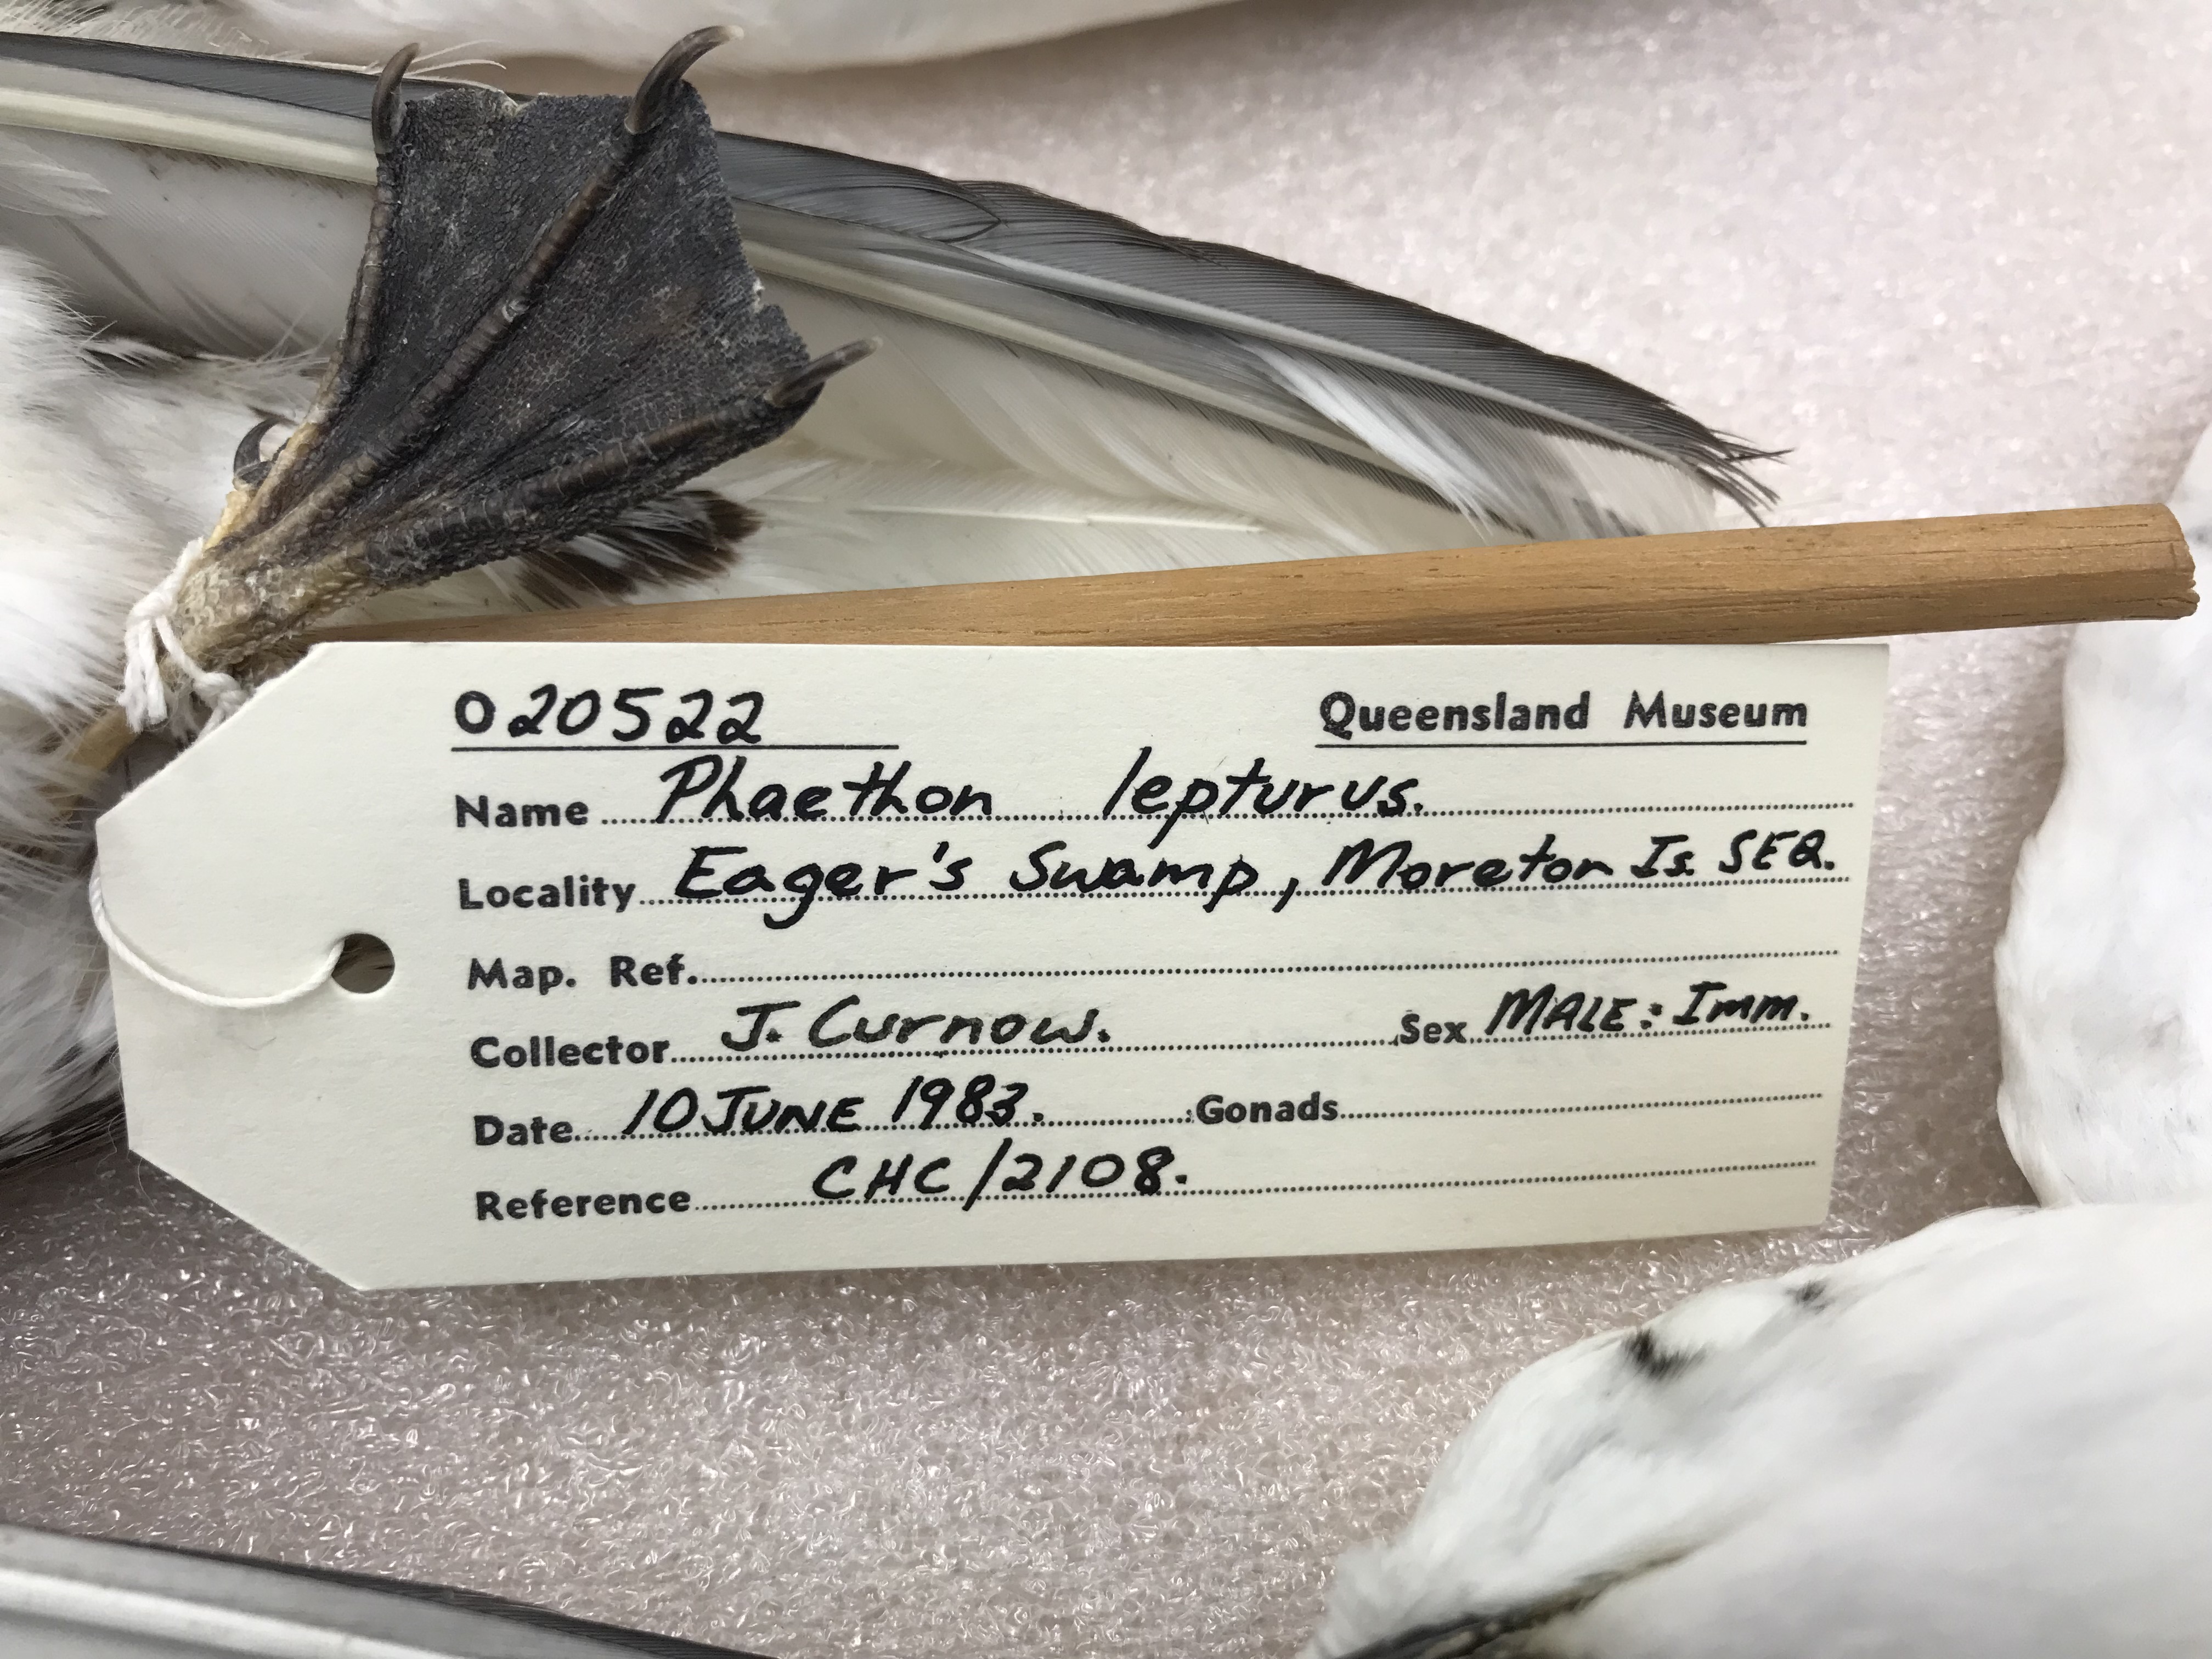 O 20522 Queensland Museum
Name Phaethon lepturus.
Locality Eager's Swamp, Moreton Is SEQ.
Map. Ref.
Collector J. Curnow. Sex MALE: Imm.
Date 10 JUNE 1983. Gonads
Reference CHC/2108.